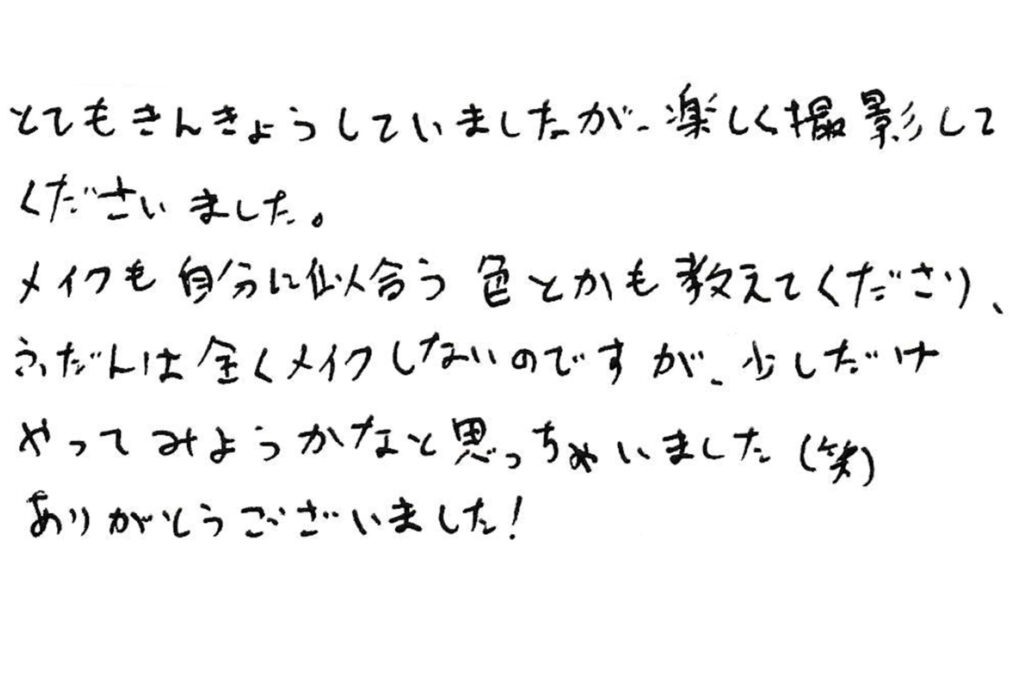 とてもきんきょうしていましたが、楽しく撮影して
くださいました。
メイクも自分に似合う色とかも教えてくださり、
ふだんは全くメイクしないのですが、少しだけ
やってみようかなと思っちゃいました(笑)
ありがとうございました!